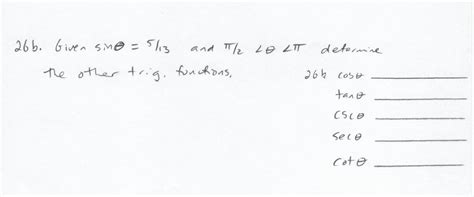 26b. Given sinθ = 5/13 and π/2 < θ < π determine
the other trig. functions.
26b cosθ
tanθ
cscθ
secθ
cotθ